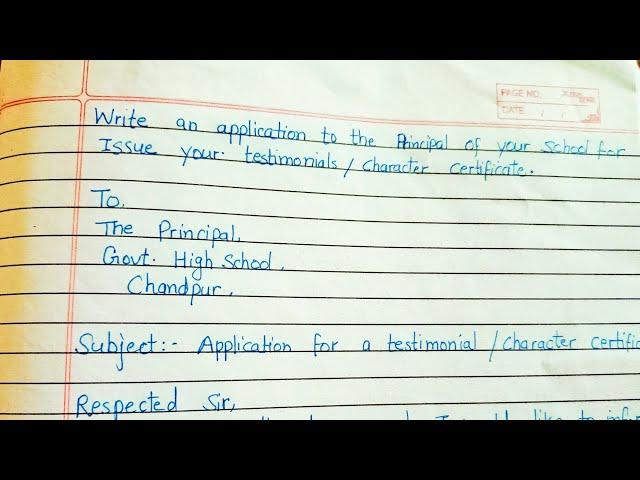 PAGE NO.
DATE / /
Write an application to the Principal of your School for
Issue your testimonials / Character certificate.
To,
The Principal,
Govt. High School,
Chandpur,
Subject:- Application for a testimonial / Character certific
Respected Sir,
I would like to infor